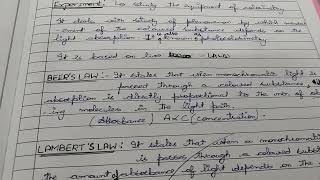 Experiment:- To study the equipment of colorimetry
It deals with study of phenomenon by which
amount of the coloured substance depends on the
light absorption. It is also known
It is based on two LAWS
BEER'S LAW:- It states that when monochromatic light is
passed through a coloured substance,
absorption is directly proportional to the no. of
ing molecules in the light path.
(Absorbance) A∝C (Concentration).
LAMBERT'S LAW: It states that when a monochromatic
is passed through a coloured subst
the amount of absorbance of light depends on the